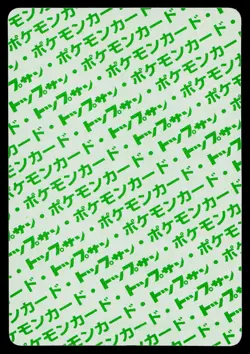 ポケモンカード・
・ポケモンカード・
トップサン・ポケモンカード
・トップサン・ポケモンカード
カード・トップサン・ポケモン
ンカード・トップサン・ポケモン
ポケモンカード・トップサン・
ポケモンカード・トップサン・
・ポケモンカード・トップサン
トップサン・ポケモンカード・
トップサン・ポケモンカード・
ド・トップサン・ポケモンカード
カード・トップサン・ポケモン
ポケモンカード・トップサン・
ポケモンカード・トップサン